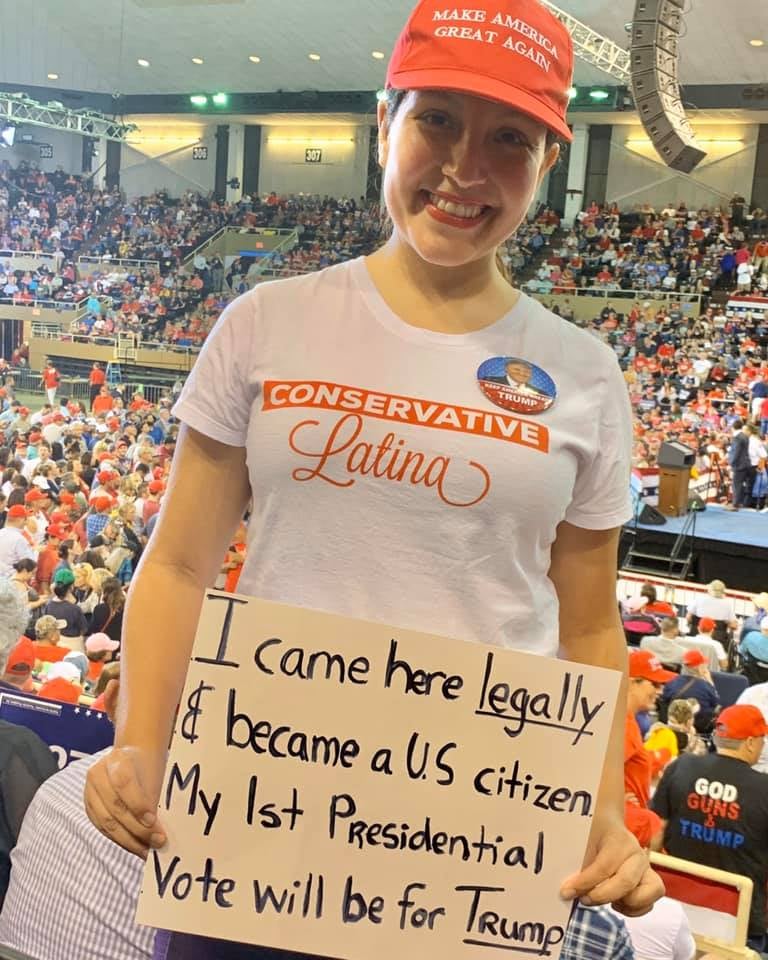 MAKE AMERICA
GREAT AGAIN
305
306
307
CONSERVATIVE
Latina
TRUMP
I came here legally
& became a U.S citizen.
My 1st Presidential
Vote will be for Trump
GOD
GUNS
&
TRUMP